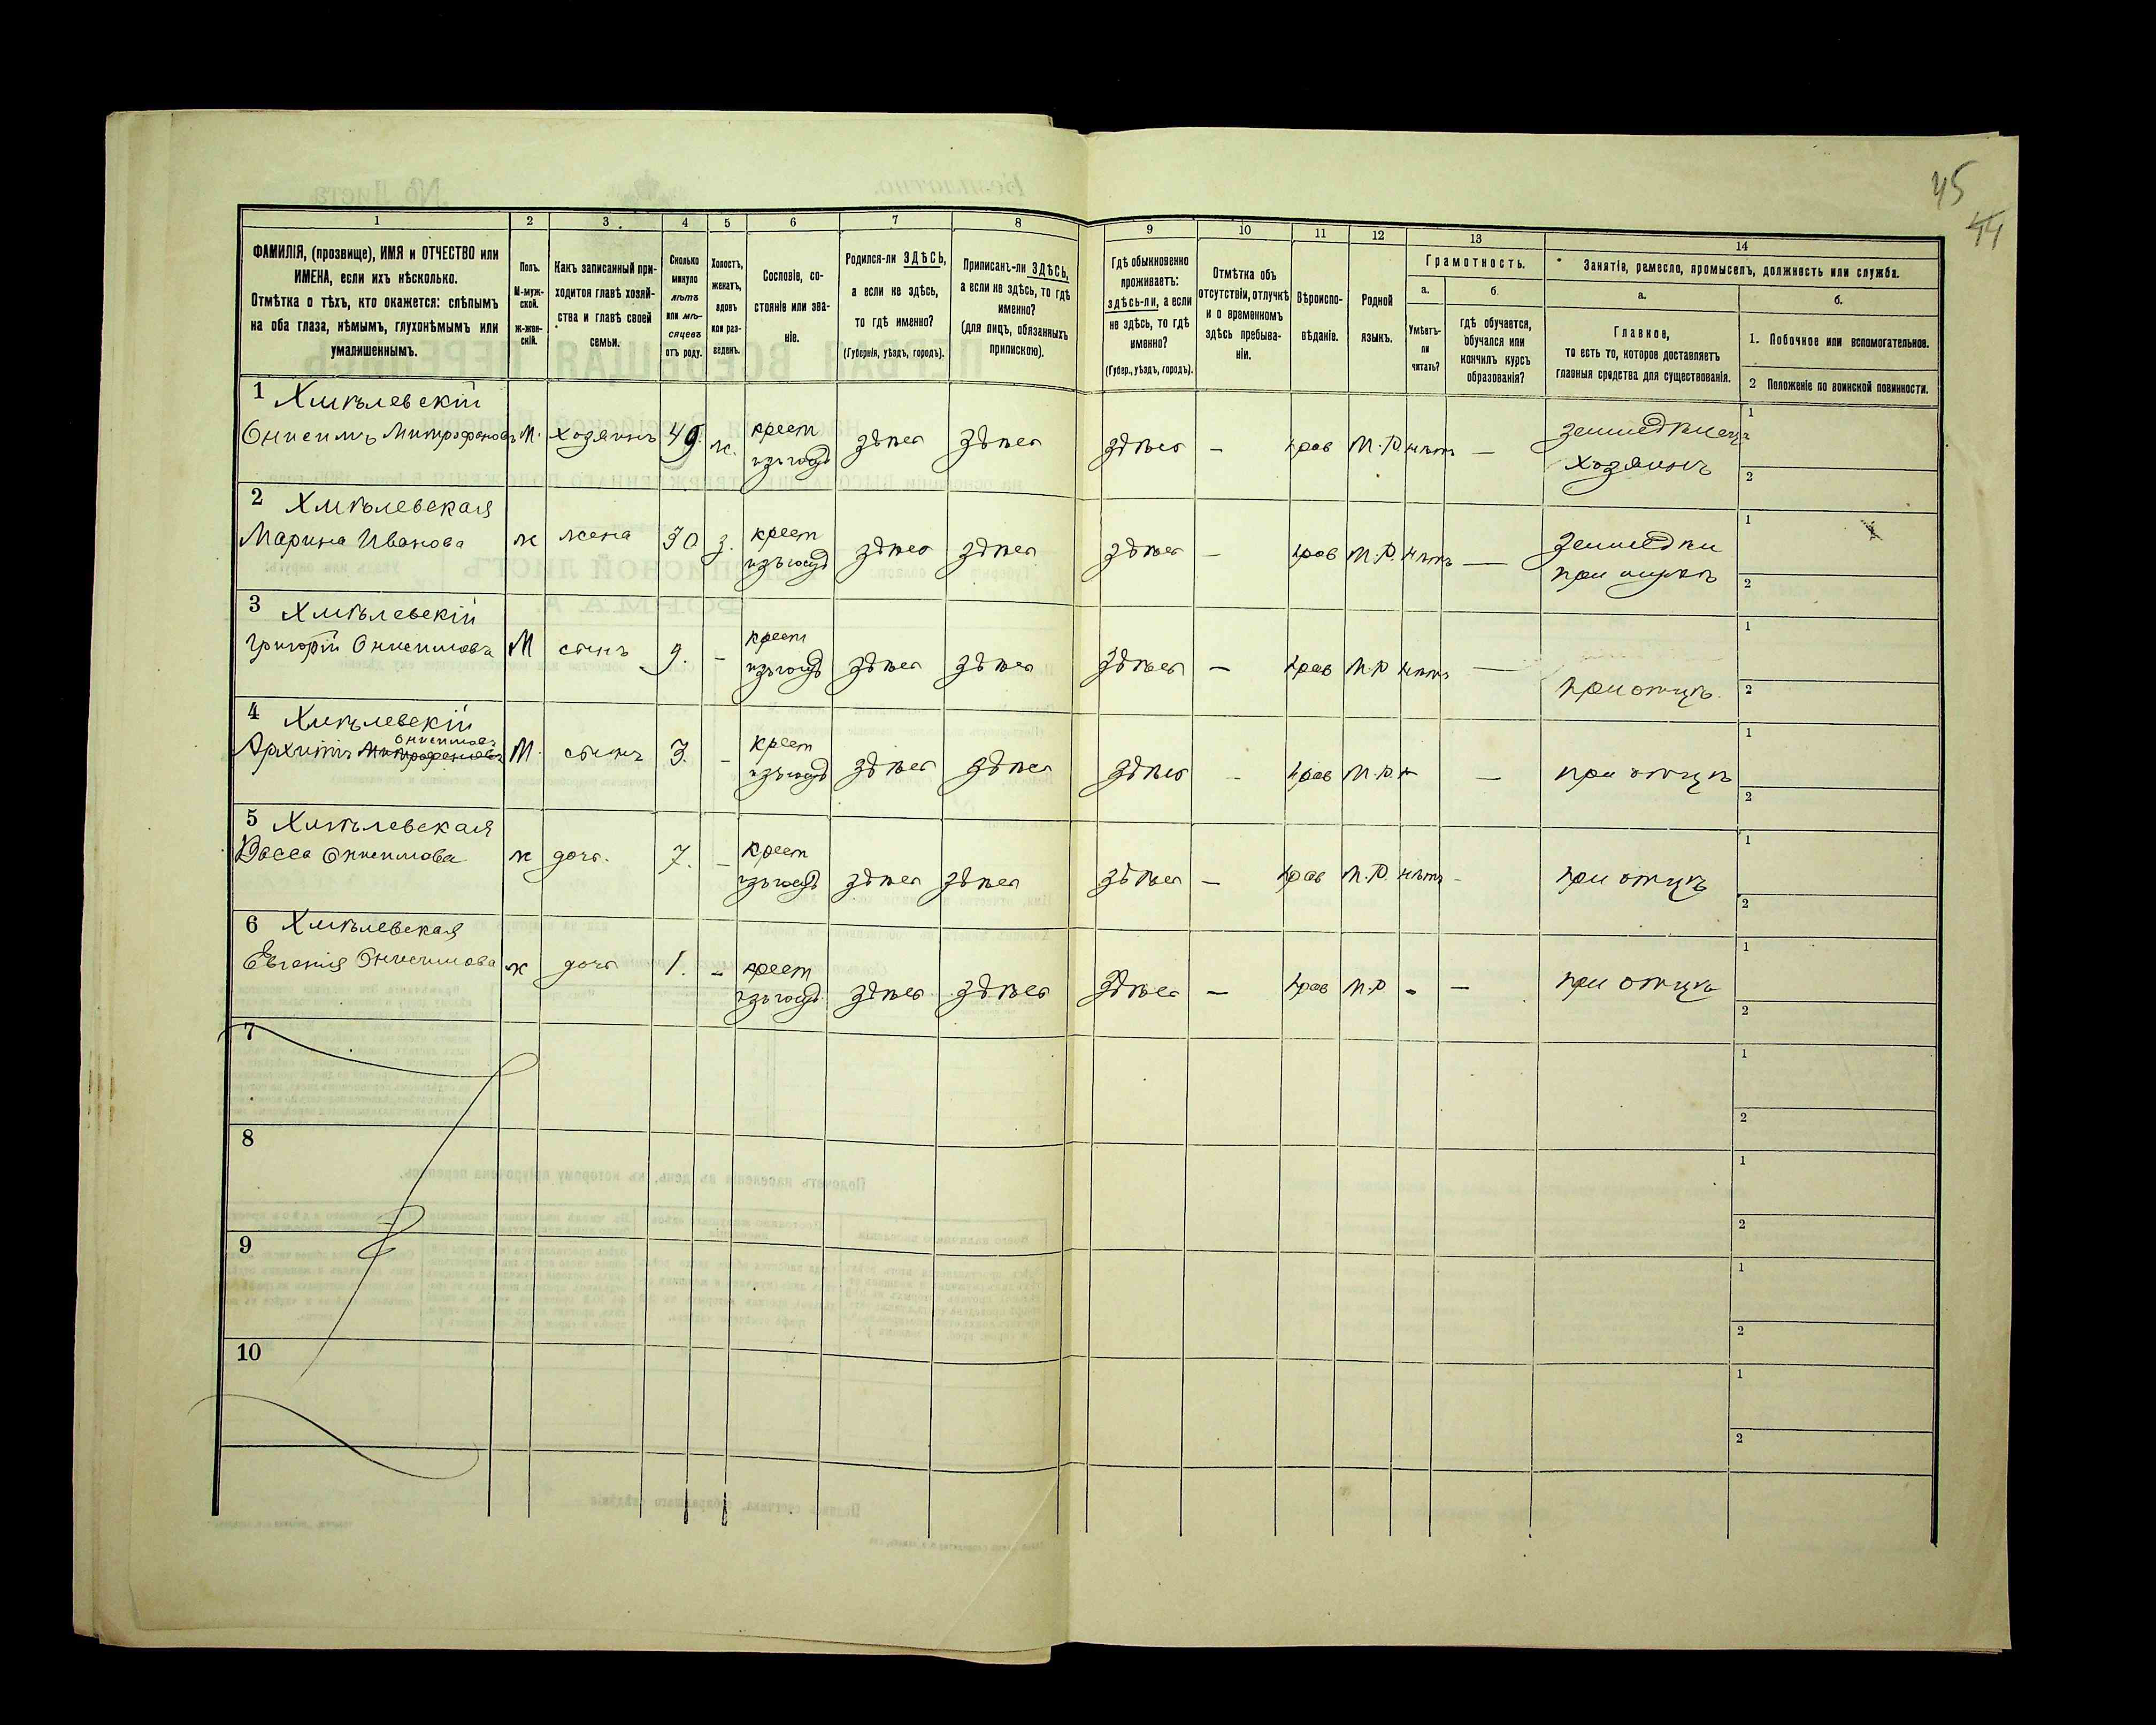 45
44
1 2 3 4 5 6 7 8 9 10 11 12 13 14
ФАМИЛІЯ, (прозвище), ИМЯ и ОТЧЕСТВО или
ИМЕНА, если ихъ нѣсколько.
Отмѣтка о тѣхъ, кто окажется: слѣпымъ
на оба глаза, нѣмымъ, глухонѣмымъ или
умалишеннымъ.
Полъ.
М-муж-
ской.
ж-жен-
скій.
Какъ записанный при-
ходится главѣ хозяй-
ства и главѣ своей
семьи.
Сколько
минуло
лѣтъ
или мѣ-
сяцевъ
отъ роду.
Холостъ,
женатъ,
вдовъ
или раз-
веденъ.
Сословіе, со-
стояніе или зва-
ніе.
Родился-ли ЗДѢСЬ,
а если не здѣсь,
то гдѣ именно?
(Губернія, уѣздъ, городъ).
Приписанъ-ли ЗДѢСЬ,
а если не здѣсь, то гдѣ
именно?
(для лицъ, обязанныхъ
припискою).
Гдѣ обыкновенно
проживаетъ:
здѣсь-ли, а если
не здѣсь, то гдѣ
именно?
(Губер., уѣздъ, городъ).
Отмѣтка объ
отсутствіи, отлучкѣ
и о временномъ
здѣсь пребыва-
ніи.
Вѣроиспо-
вѣданіе.
Родной
языкъ.
Грамотность.
а.
Умѣетъ-
ли
читать?
б.
гдѣ обучается,
обучался или
кончилъ курсъ
образованія?
Занятіе, ремесло, промыселъ, должность или служба.
а.
Главное,
то есть то, которое доставляетъ
главныя средства для существованія.
б.
1. Побочное или вспомогательное.
2 Положеніе по воинской повинности.
1 Хмѣлевскій
Онисимъ Митрофановъ М. хозяинъ 49. ж. крест здѣсь здѣсь здѣсь — прав М.Р. нѣтъ — земледѣлецъ 1
изъ госуд хозяинъ 2
2 Хмѣлевская
Марина Иванова ж жена 30 з. крест здѣсь здѣсь здѣсь — прав М.Р. нѣтъ — земледѣл 1
изъ госуд при мужѣ 2
3 Хмѣлевскій 1
Григорій Онисимовъ М сынъ 9. - крест
изъ госуд здѣсь здѣсь здѣсь — прав М.Р нѣтъ — при отцѣ. 2
4 Хмѣлевскій 1
Онисимовъ
Архипъ Митрофановъ М. сынъ 3. - крест
изъ госуд здѣсь здѣсь здѣсь - прав М.Р. н — при отцѣ 2
5 Хмѣлевская 1
Васса Онисимова ж дочь. 7. - крест
изъ госуд здѣсь здѣсь здѣсь — прав М.Р. нѣтъ - при отцѣ 2
6 Хмѣлевская 1
Евгенія Онисимова ж дочь 1. - крест
изъ госуд здѣсь здѣсь здѣсь — прав М.Р - — при отцѣ 2
7 1
2
8 1
2
9 1
2
10 1
2